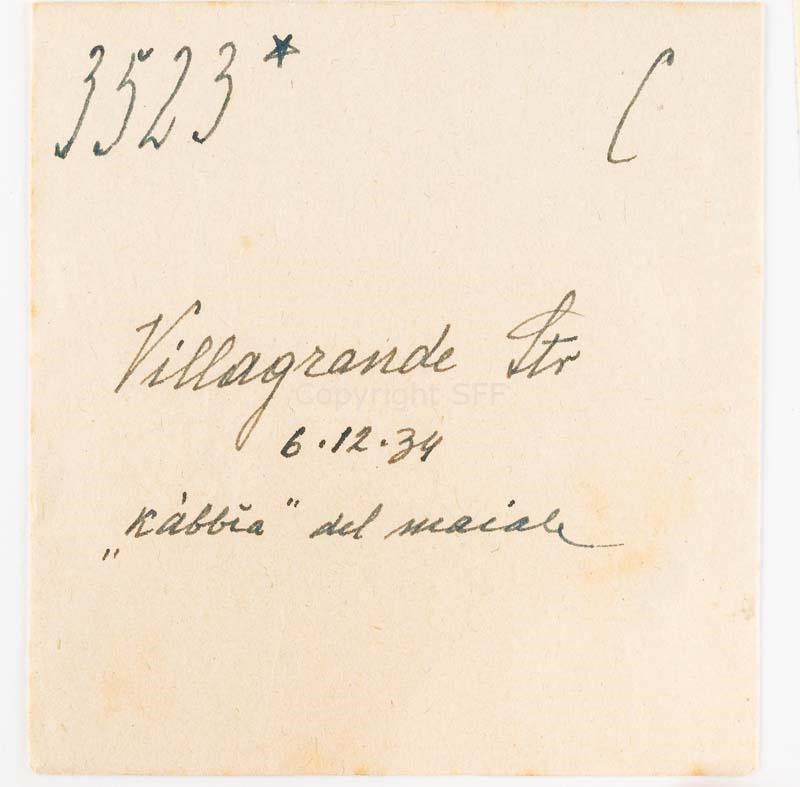 3523* C
Villagrande Str
Copyright SFF
6.12.34
„kàbbĭa" del maiale